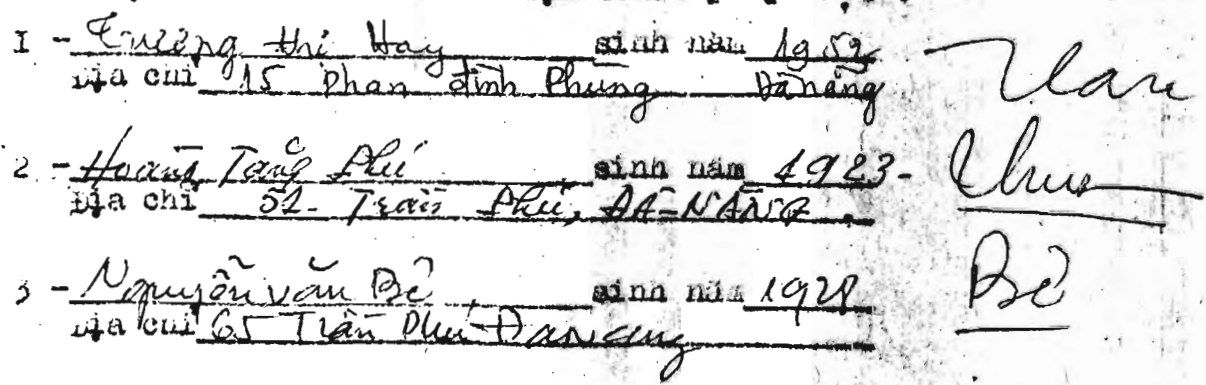 1 - Trương thị Hay sinh năm 1952
Địa chỉ 15 Phan đình Phùng Đà nẵng
2 - Hoàng Tăng Phú sinh năm 1923-
Địa chỉ 52 - Trần Phú, ĐÀ-NẴNG
3 - Nguyễn văn Bê sinh năm 1928
Địa chỉ 65 Trần Phú Đà nẵng
Bê